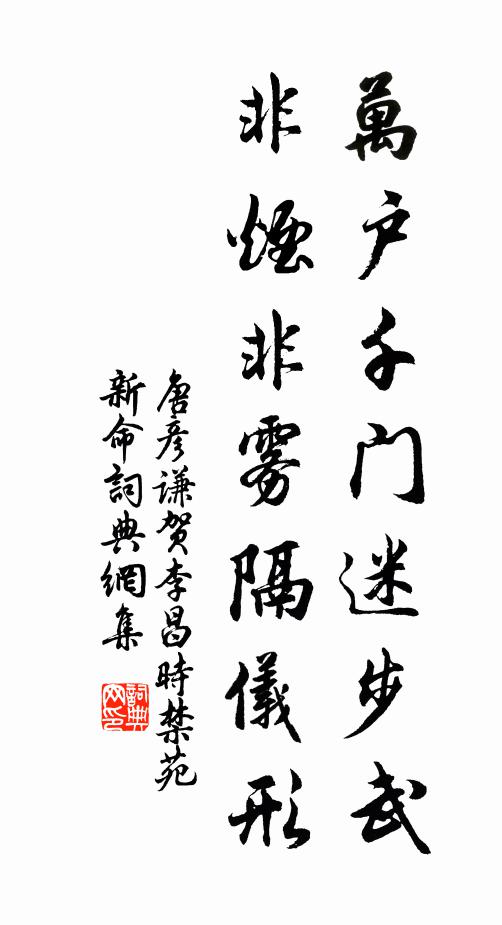 萬户千门迷步武
非煙非雾隔儀形
唐彦谦贺李昌時禁苑
新命詞典網集
詞典网印